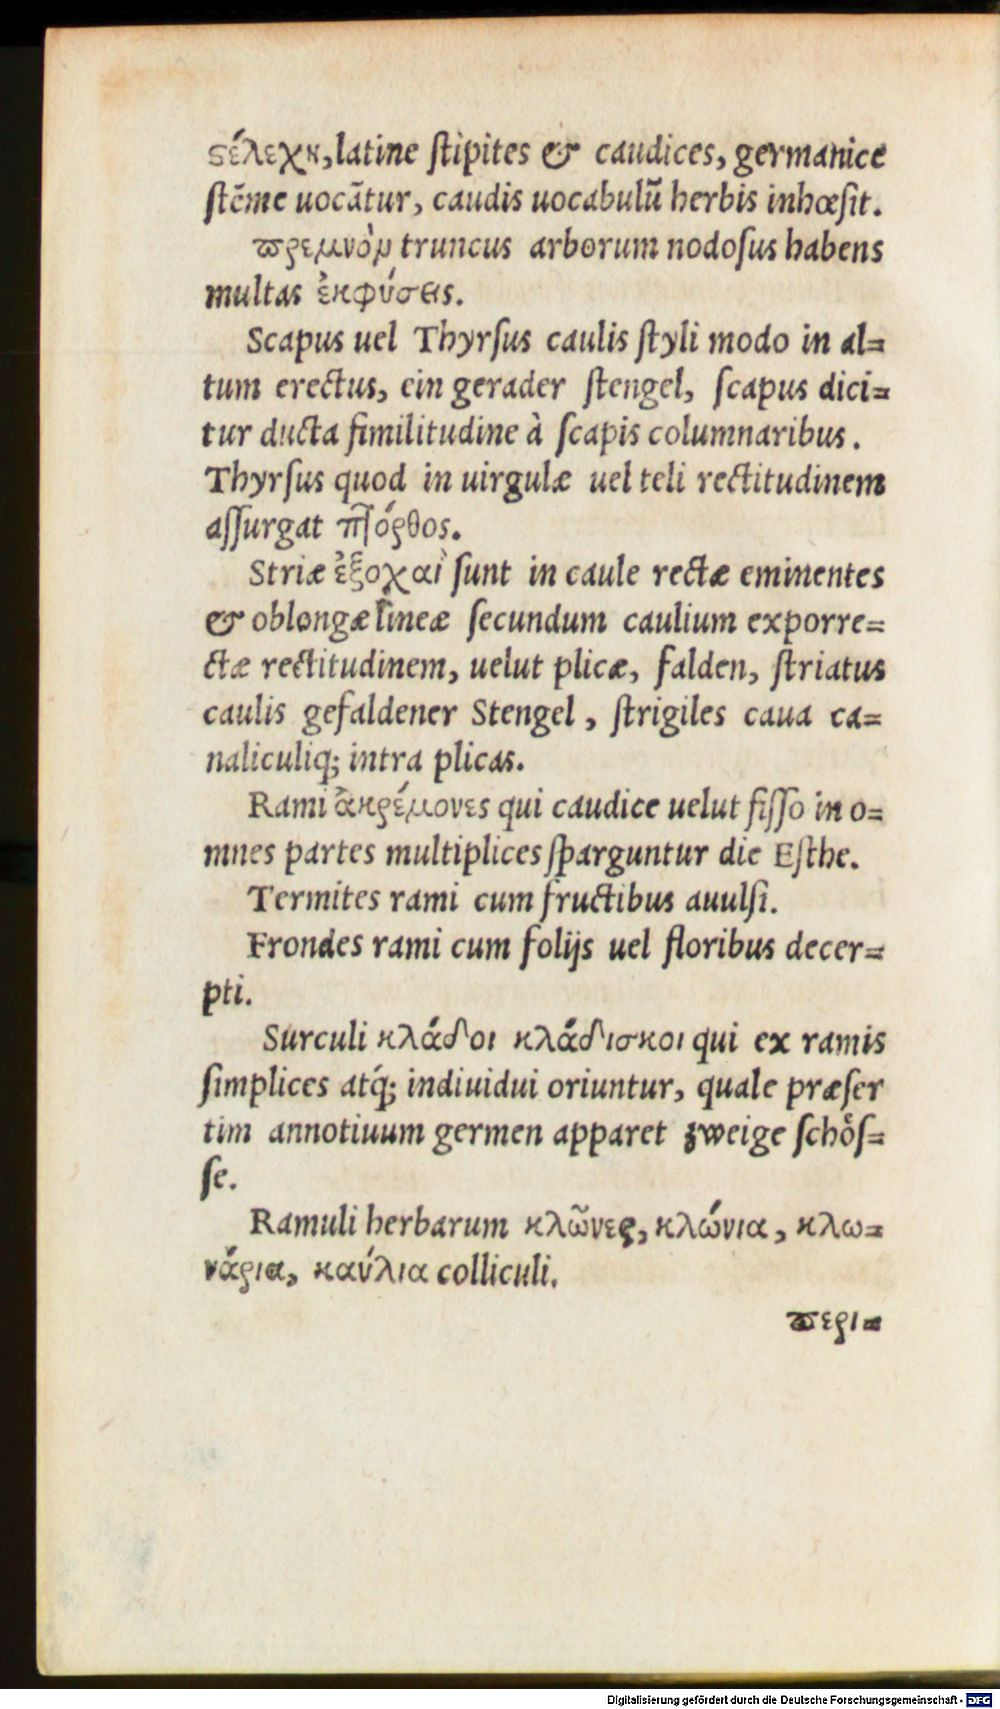 ϛέλεχη, latine ſtipites & caudices, germanice
ſtēme uocātur, caudis uocabulũ herbis inhœſit.
πρεμνὸν truncus arborum nodoſus habens
multas ἐκφύσεις.
Scapus uel Thyrſus caulis ſtyli modo in al=
tum erectus, ein gerader ſtengel, ſcapus dici=
tur ducta ſimilitudine à ſcapis columnaribus.
Thyrſus quod in uirgulæ uel teli rectitudinem
aſſurgat πτόρθος.
Striæ ἐξοχαὶ ſunt in caule rectæ eminentes
& oblongæ lineæ ſecundum caulium exporre=
ctæ rectitudinem, uelut plicæ, falden, ſtriatus
caulis gefaldener Stengel, ſtrigiles caua ca=
naliculiq; intra plicas.
Rami ἀκρέμονες qui caudice uelut fiſſo in o=
mnes partes multiplices ſparguntur die Eſthe.
Termites rami cum fructibus auulſi.
Frondes rami cum folijs uel floribus decer=
pti.
Surculi κλάδοι κλάδισκοι qui ex ramis
ſimplices atq́; indiuidui oriuntur, quale præſer
tim annotiuum germen apparet zweige ſchoͤſ=
ſe.
Ramuli herbarum κλῶνες, κλώνια, κλω=
νάρια, καύλια colliculi.
περι=
Digitalisierung gefördert durch die Deutsche Forschungsgemeinschaft - DFG